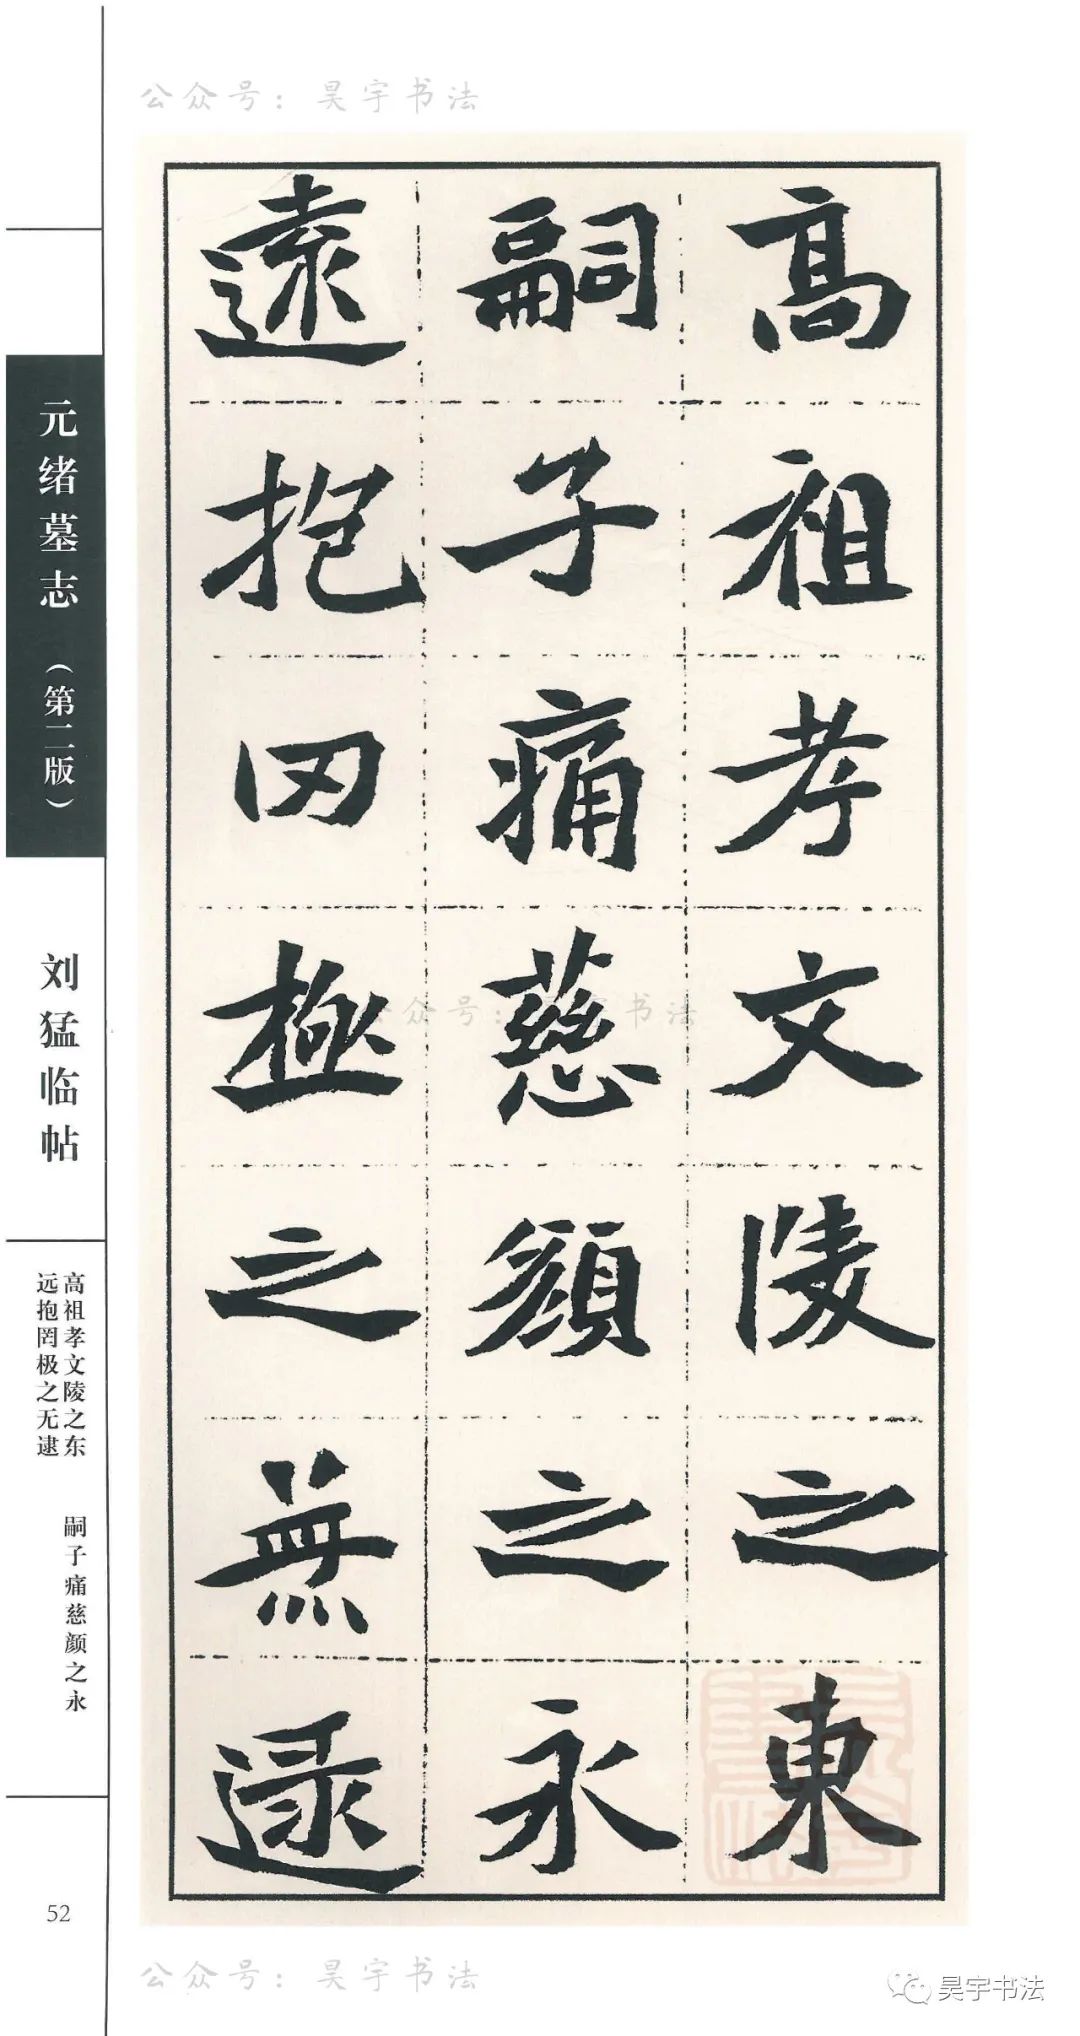 公众号：昊宇书法
高祖孝文陵之東
嗣子痛慈顔之永
遠抱罔極之無逮
公众号：昊宇书法
元绪墓志（第二版）
刘猛临帖
高祖孝文陵之东
嗣子痛慈颜之永
远抱罔极之无逮
52
公众号：昊宇书法
昊宇书法